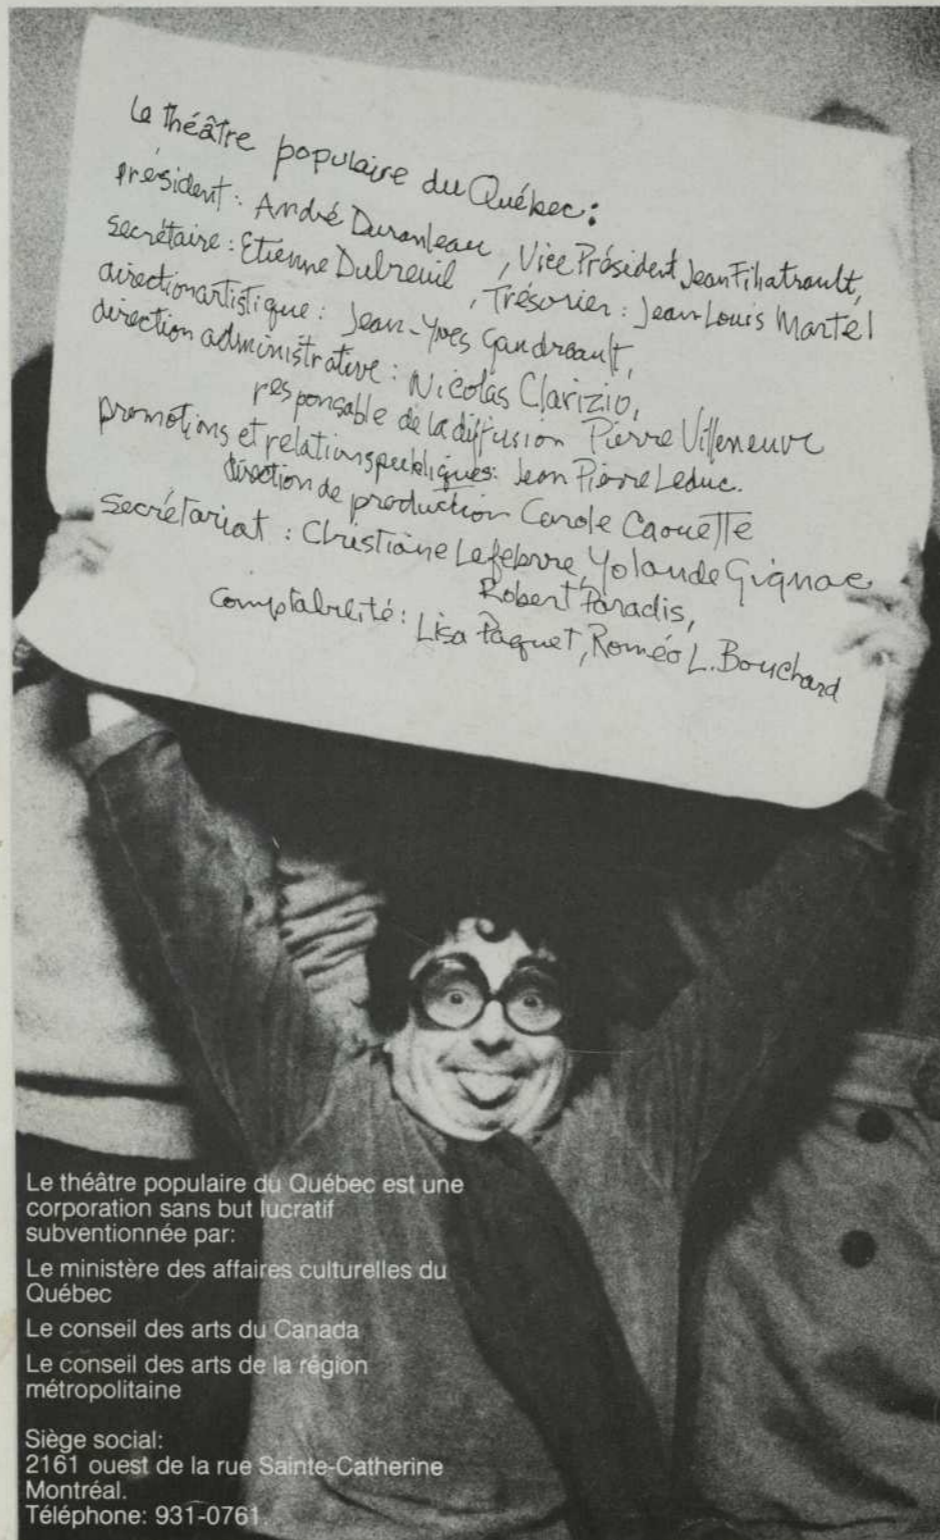 Le théâtre populaire du Québec:
président: André Duranleau, Vice Président Jean Filiatrault,
secrétaire: Etienne Dubreuil, Trésorier: Jean Louis Martel
direction artistique: Jean-Yves Gaudreault,
direction administrative: Nicolas Clarizio,
responsable de la diffusion Pierre Villeneuve
promotions et relations publiques: Jean Pierre Leduc.
direction de production Carole Caouette
Secrétariat: Christiane Lefebvre, Yolande Gignac
Robert Paradis,
Comptabilité: Lisa Paquet, Roméo L. Bouchard
Le théâtre populaire du Québec est une
corporation sans but lucratif
subventionnée par:
Le ministère des affaires culturelles du
Québec
Le conseil des arts du Canada
Le conseil des arts de la région
métropolitaine
Siège social:
2161 ouest de la rue Sainte-Catherine
Montréal.
Téléphone: 931-0761.